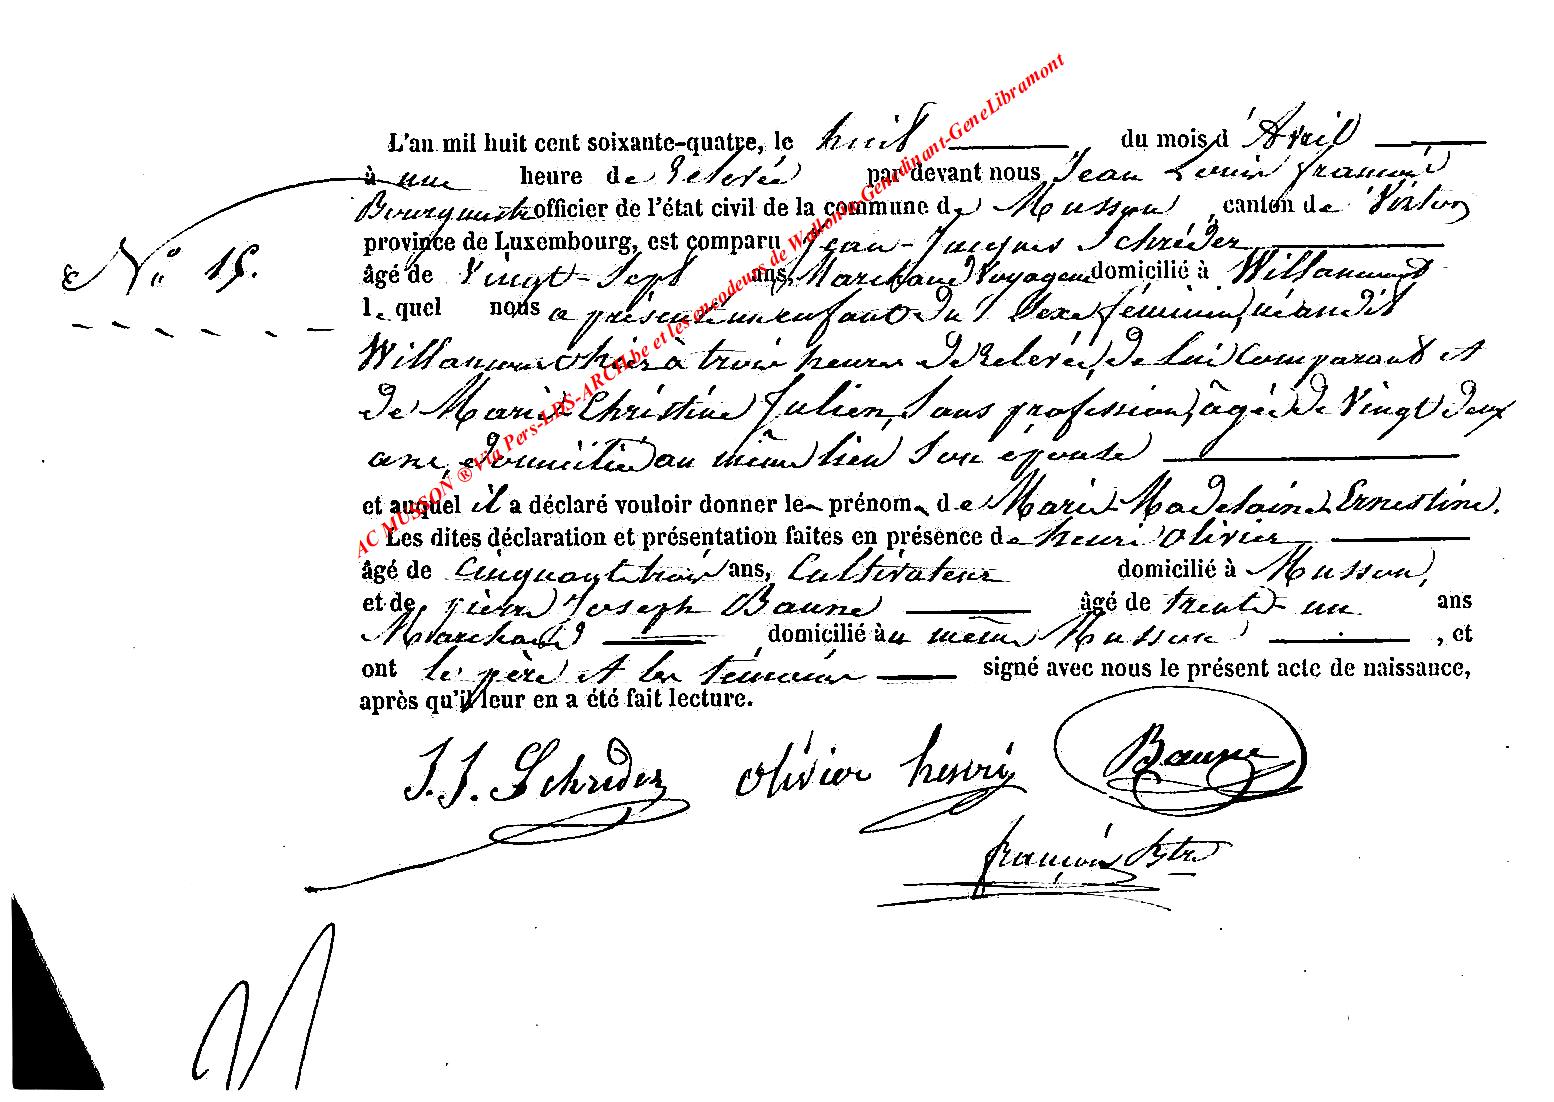 L'an mil huit cent soixante-quatre, le huit du mois d'Avril
à une heure de relevée par devant nous Jean Louis François
Bourgmestre officier de l'état civil de la commune de Musson, canton de Virton
province de Luxembourg, est comparu Jean-Jacques Schréder
N° 15.
âgé de Vingt-Sept ans, Marchand Voyageur domicilié à Willancourt
lequel nous a présenté un enfant du Sexe féminin, né audit
Willancourt hier à trois heures de relevée, de lui Comparant et
de Marie Christine Julien, Sans profession, âgée de Vingt deux
ans, domiciliée au même lieu Son épouse
et auquel il a déclaré vouloir donner le prénom de Marie-Madelaine-Ernestine.
Les dites déclaration et présentation faites en présence de henri Olivier
âgé de Cinquante trois ans, Cultivateur domicilié à Musson,
et de pierre Joseph Baune âgé de trente-un ans
Marchand domicilié au même Musson, et
ont le père et les témoins signé avec nous le présent acte de naissance,
après qu'il leur en a été fait lecture.
J.J. Schreder Olivier henri Baune
françois Btre
AC MUSSON ® Via Pers-LDS-ARCH.be et les encodeurs de Wallonia-Genedinant-GeneLibramont